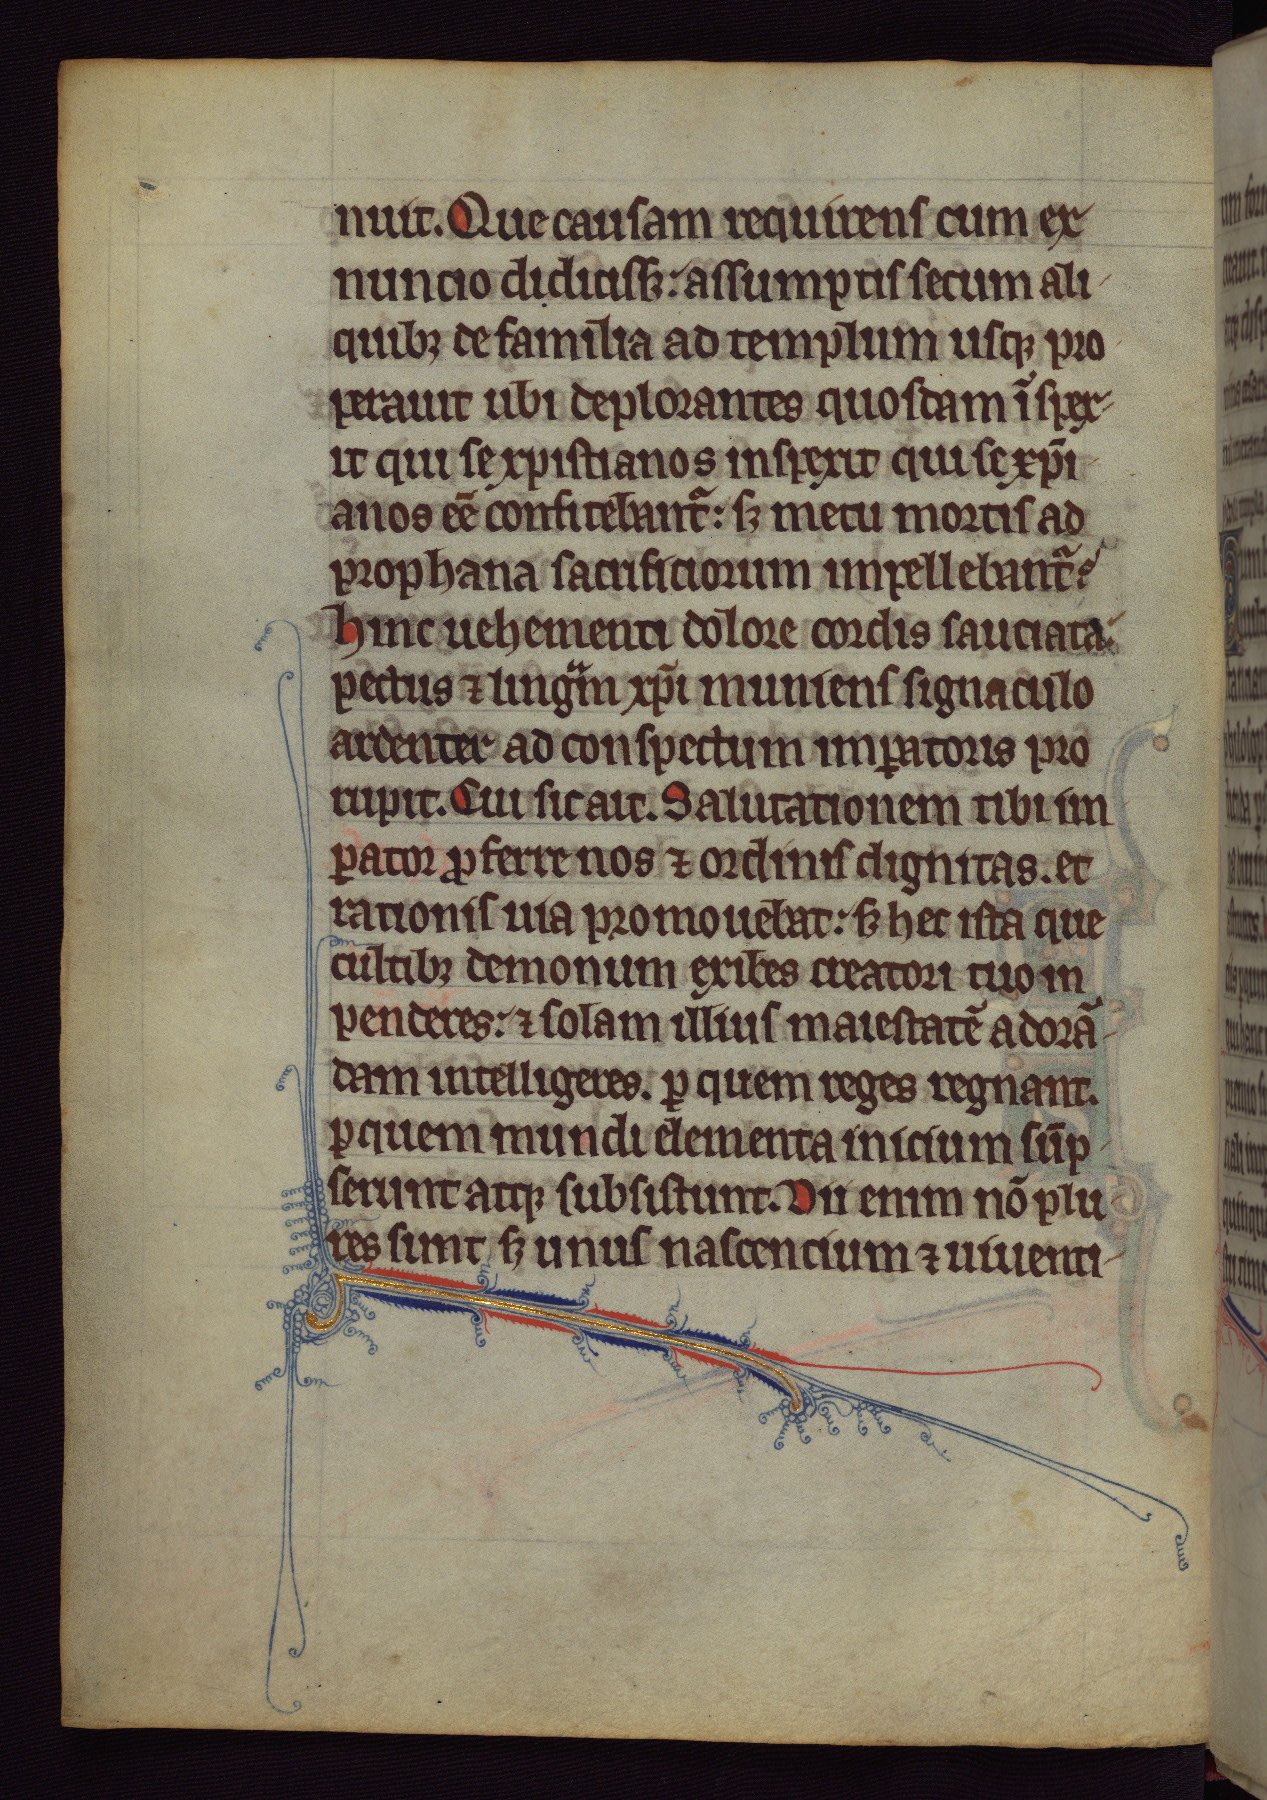 nuit. Que causam requirens cum ex
nuncio didicissꝫ: assumptis secum ali-
quibꝫ de familia ad templum usqꝫ pro-
perauit ubi deplorantes quosdam ĩspex-
it qui se xpistianos inspexit qui se xp̄i-
anos eē confitebant᷑: sꝫ metu mortis ad
prophana sacrificiorum impellebant᷑.
hinc uehementi dolore cordis sauciata:
pectus ⁊ linguam xp̄i muniens signaculo
ardenter ad conspectum imꝑatoris pro
rupit. Cui sic ait. Salutationem tibi im
ꝑator ꝓferre nos ⁊ ordinis dignitas. et
rationis uia promouebat: sꝫ hec ista que
cultibꝫ demonum exibes creatori tuo in
penderes: ⁊ solam illius maiestatē adorā-
dam intelligeres. ꝑ quem reges regnant.
ꝑ quem mundi elementa inicium sūp-
serunt atqꝫ subsistunt. Dii enim nō plu
res sunt sꝫ unus nascencium ⁊ uiuenti-